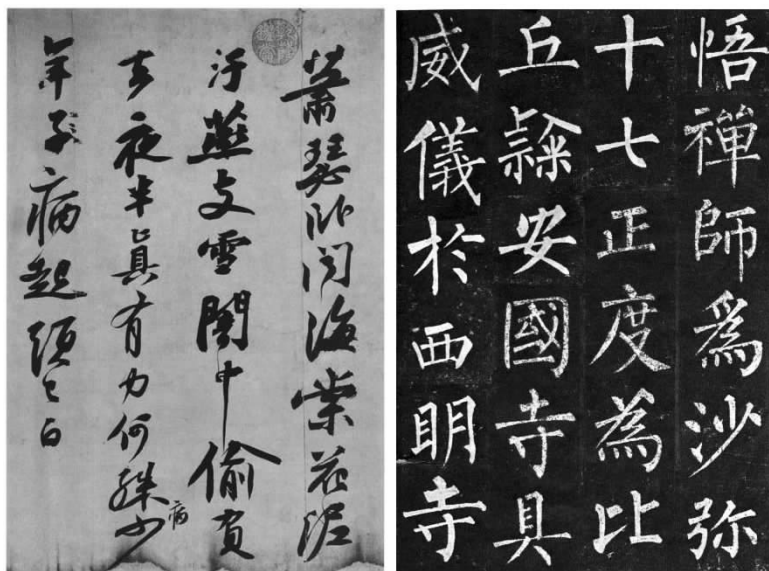 蕭瑟卧聞海棠花泥
汙燕支雪闇中偷負
去夜半真有力何殊少
病
年子病起頭已白
悟禪師爲沙弥
十七正度為比
丘隸安國寺具
威儀於西明寺